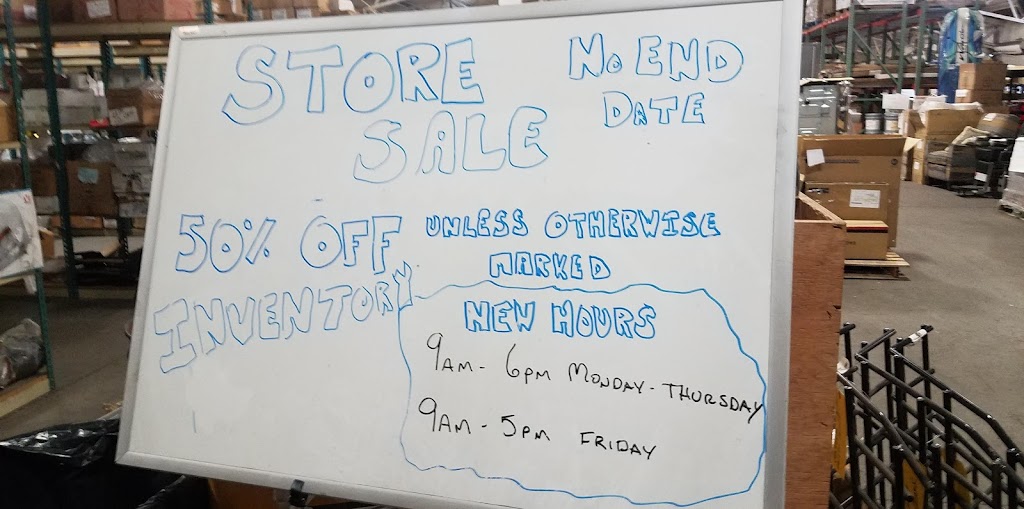 STORE
SALE
No END
DATE
50% OFF
INVENTORY
UNLESS OTHERWISE
MARKED
NEW HOURS
9AM - 6PM MONDAY - THURSDAY
9AM - 5PM FRIDAY